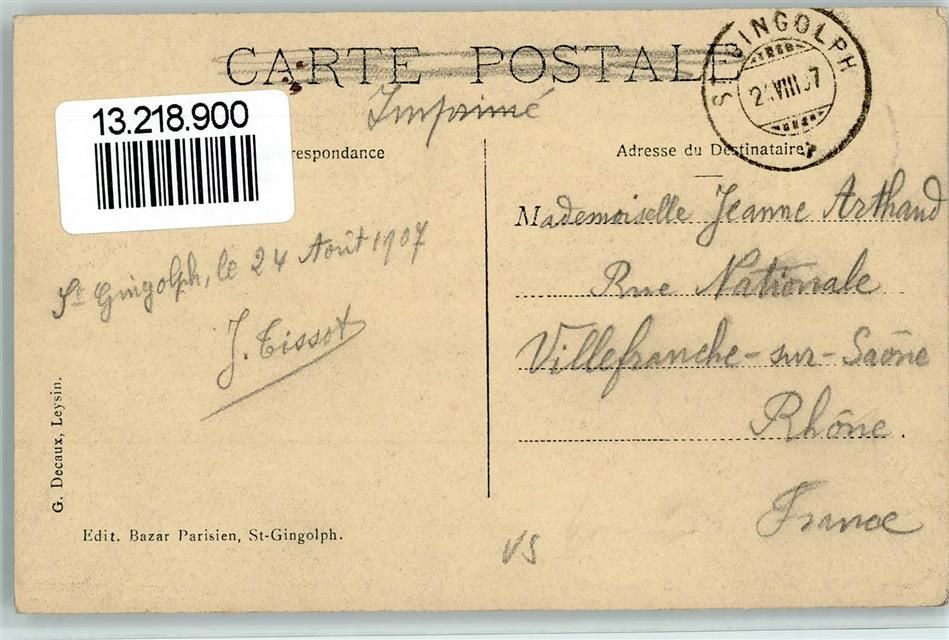 CARTE POSTALE
Imprimé
ST-GINGOLPH
VIII 07
13.218.900
respondance
Adresse du Destinataire
Mademoiselle Jeanne Arthaud
Rue Nationale
Villefranche-sur-Saône
Rhône.
France
St Gingolph, le 24 Août 1907
J. Tissot
G. Decaux, Leysin.
Edit. Bazar Parisien, St-Gingolph.
VS